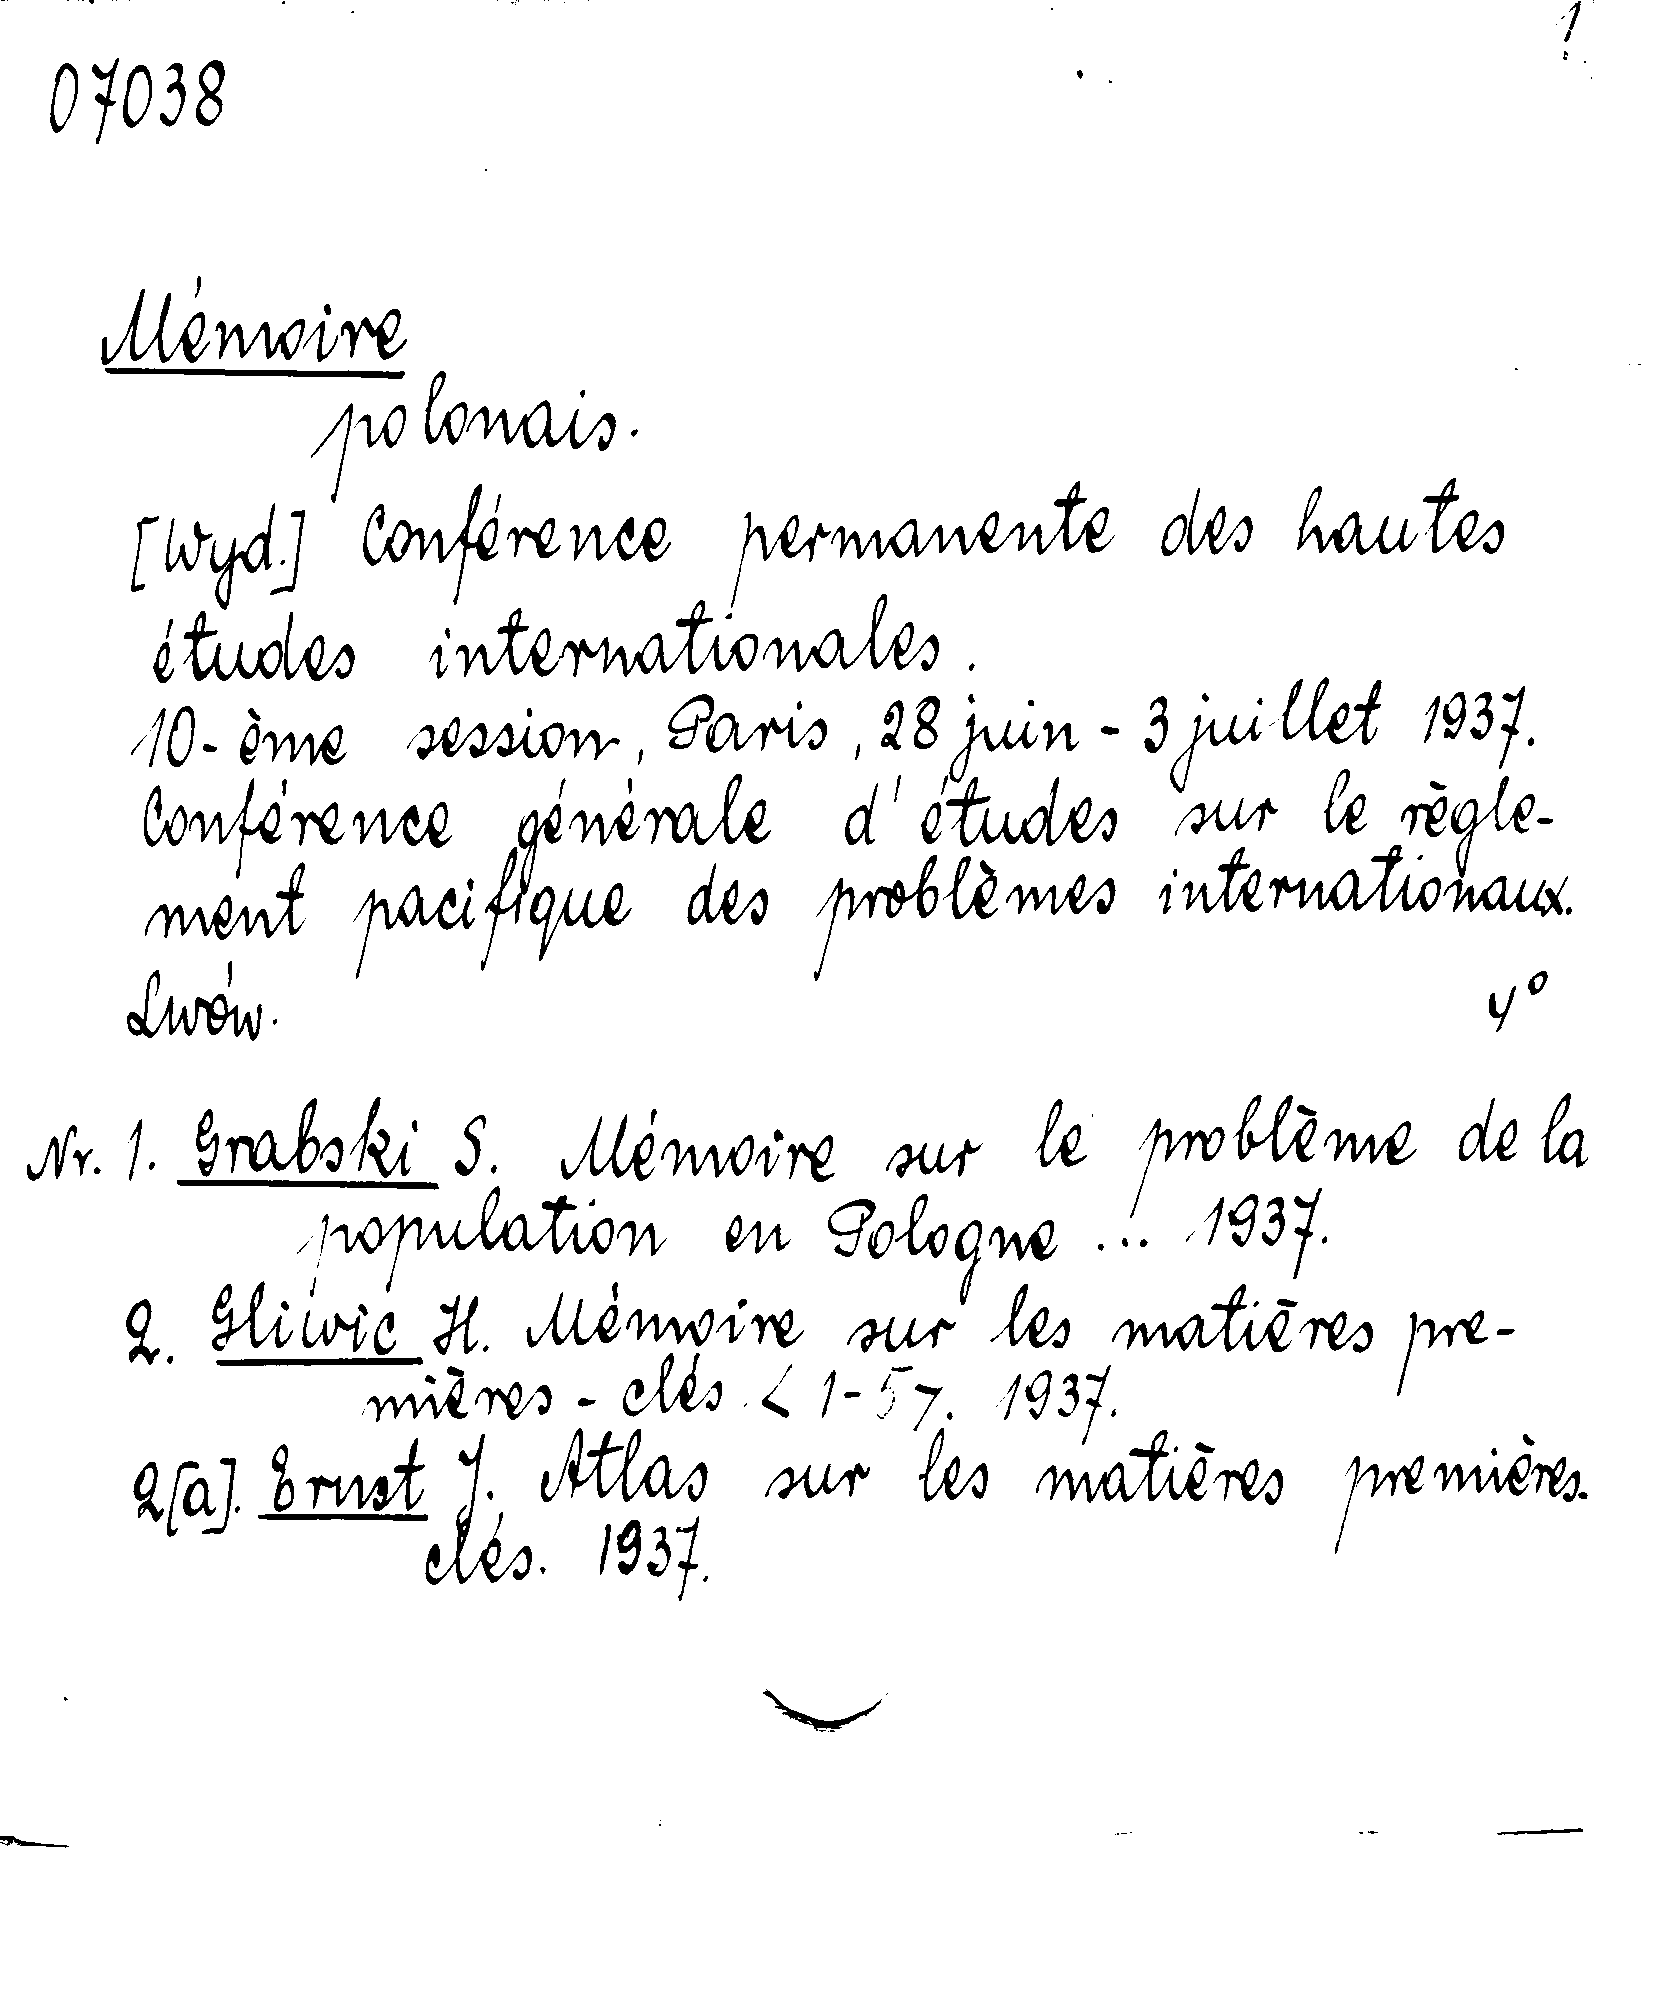 1
07038
Mémoire
polonais.
[Wyd.] Conférence permanente des hautes
études internationales.
10-ème session, Paris, 28 juin - 3 juillet 1937.
Conférence générale d'études sur le règle-
ment pacifique des problèmes internationaux.
Lwów. 4°
Nr. 1. Grabski S. Mémoire sur le problème de la
population en Pologne ... 1937.
2. Gliwic H. Mémoire sur les matières pre-
mières - clés <1-5>. 1937.
2[a]. Ernst J. Atlas sur les matières premières-
clés. 1937.